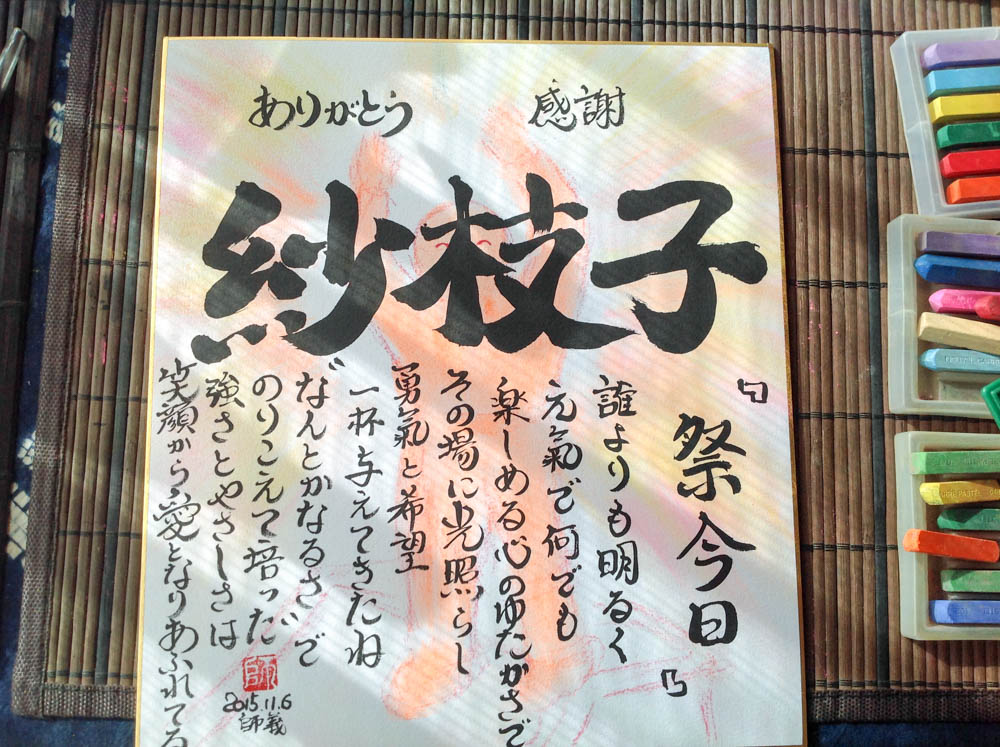 ありがとう
感謝
紗枝子
『祭今日』
誰よりも明るく
元氣で何でも
楽しめる心のゆたかさで
その場に光照らし
勇氣と希望
一杯与えてきたね
〝なんとかなるさ〟で
のりこえて培った
強さとやさしさは
笑顔から愛となりあふれてる
2015.11.6
師義